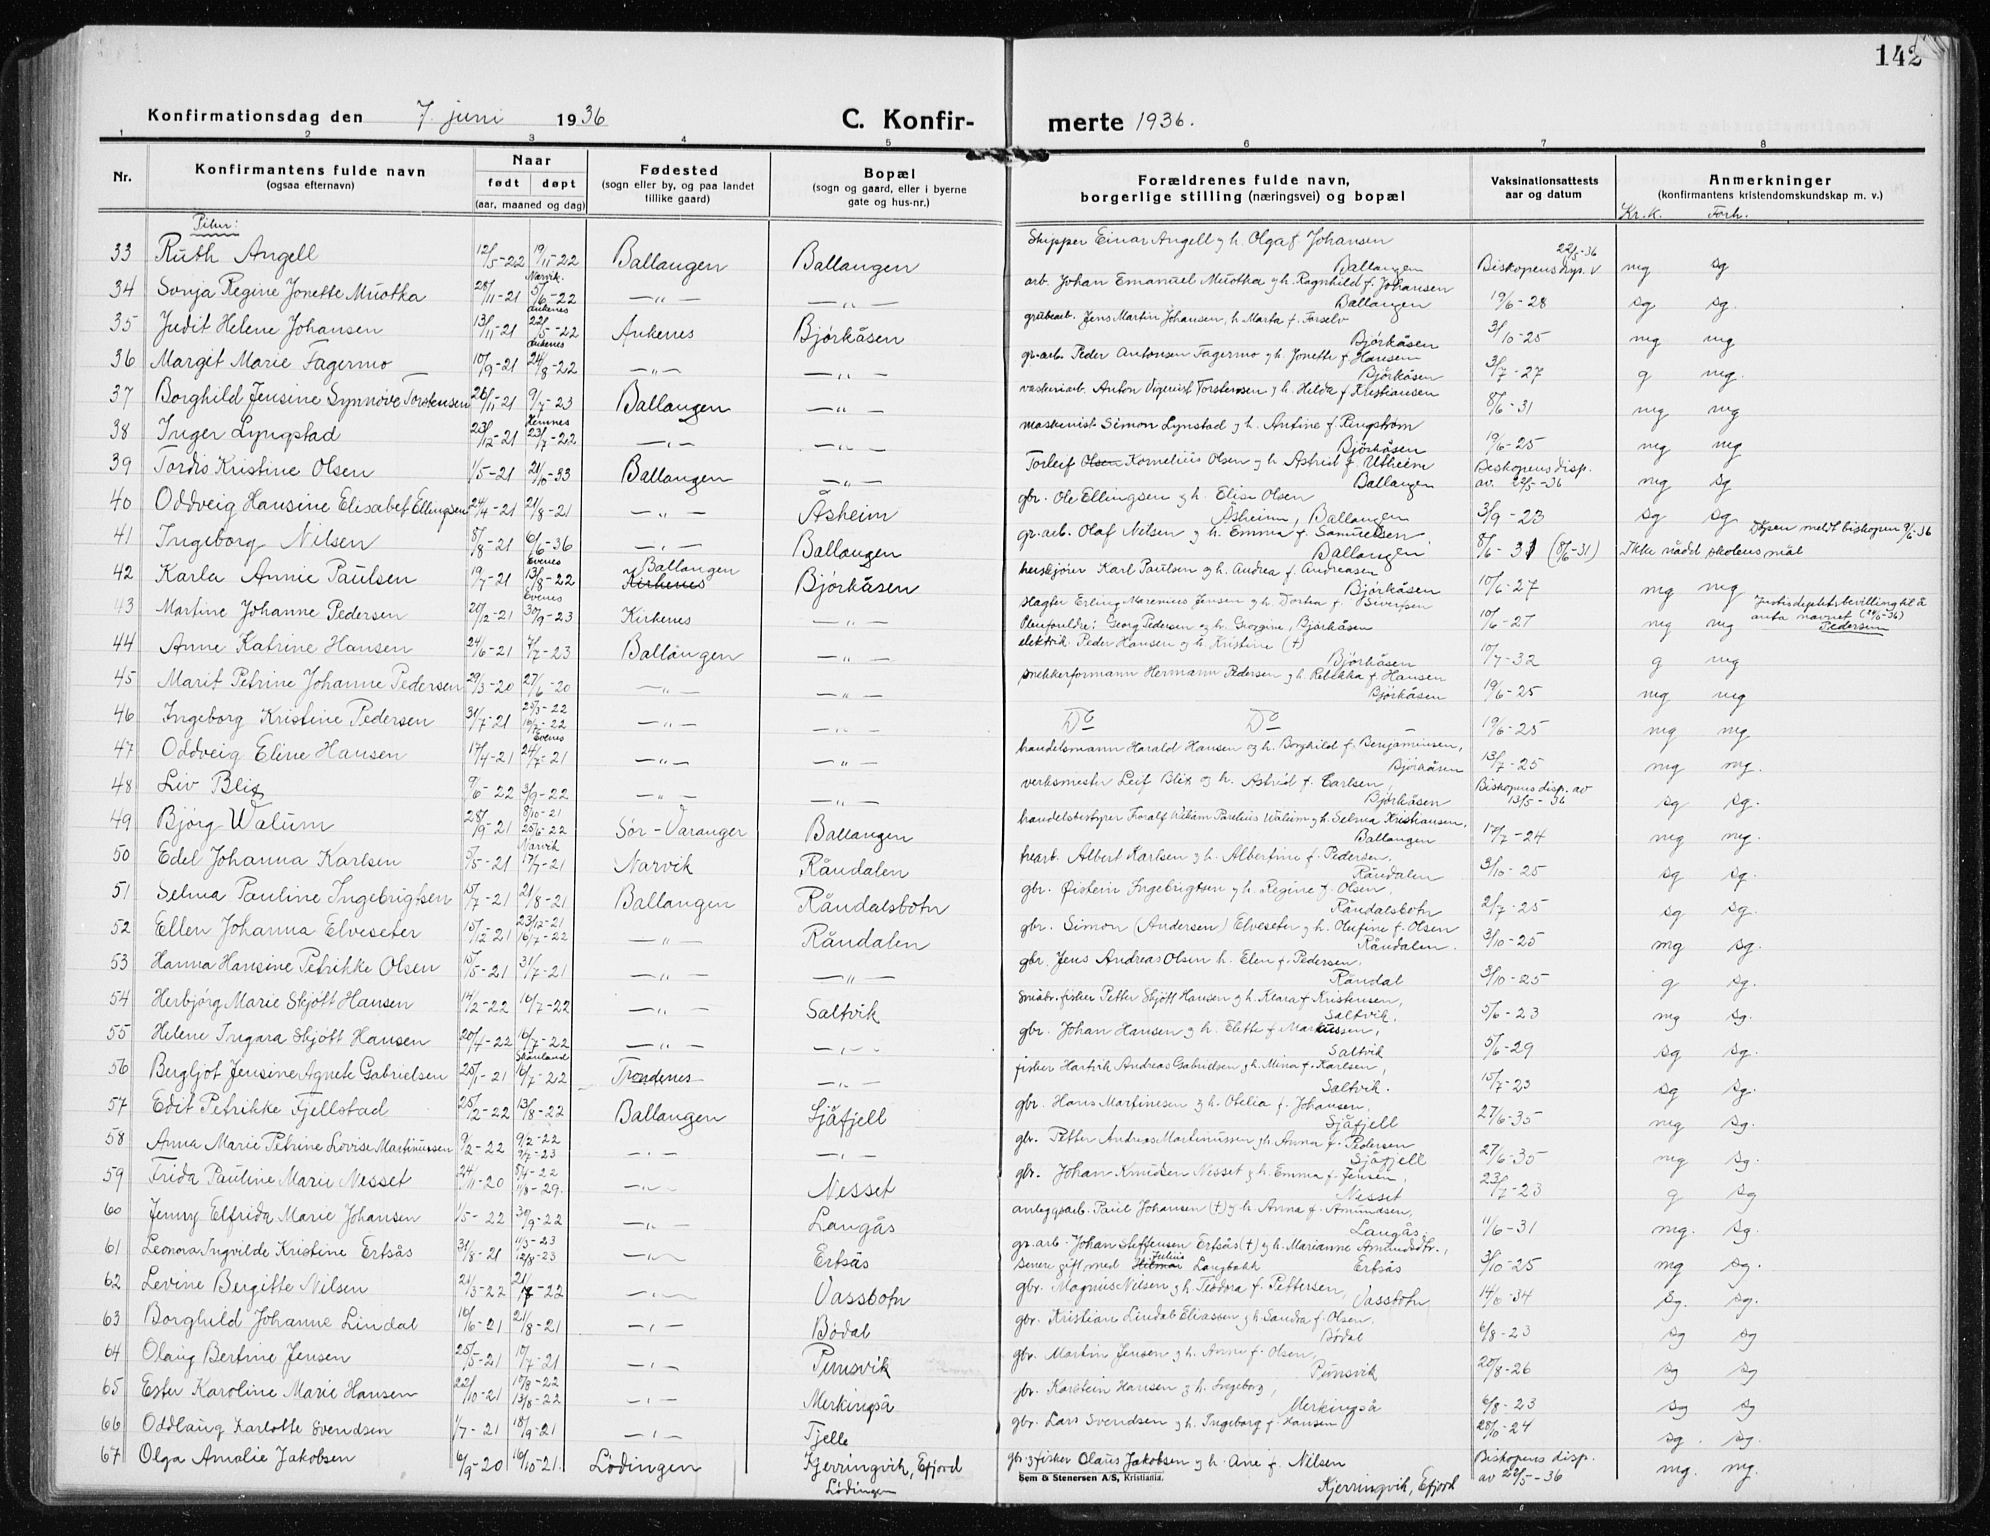 142
Konfirmationsdag den 7. juni 1936 C. Konfirmerte 1936.
1 2 3 4 5 6 7 8
Nr. Konfirmantens fulde navn (ogsaa efternavn) Naar født døpt (aar, maaned og dag) Fødested (sogn eller by, og paa landet tillike gaard) Bopæl (sogn og gaard, eller i byerne gate og hus-nr.) Forældrenes fulde navn, borgerlige stilling (næringsvei) og bopæl Vaksinationsattests aar og datum Anmerkninger (konfirmantens kristendomskundskap m. v.)
Kr.k. Forh.
Piker:
33 Ruth Angell 12/5-22 19/11-22 Ballangen Ballangen Skipper Einar Angell og h. Olga f. Johansen Ballangen Biskopens disp. v 22/5-36 mg sg
34 Sonja Regine Jonette Muotka 28/11-21 Narvik 5/6-22 —"— —"— arb. Johan Emanuel Muotka og h. Ragnhild f. Johansen Ballangen 19/6-28 sg sg.
35 Judit Helene Johansen 13/11-21 Ankenes 22/5-22 Ankenes Bjørkåsen grubearb. Jens Martin Johansen, h. Marta f. Forselv Bjørkåsen 3/10-25 mg mg
36 Margit Marie Fagermo 10/9-21 Ankenes 24/8-22 —"— —"— gr.arb. Peder Antonsen Fagermo og h. Jonette f. Hansen Bjørkåsen 3/7-27 g mg.
37 Borghild Jensine Synnøve Torstensen 26/11-21 9/7-23 Ballangen —"— vaskeriarb. Anton Vigerust Torstensen og h. Helda f. Kristiansen 8/6-31 mg mg
38 Inger Lyngstad 23/12-21 Hemnes 23/7-22 —"— —"— maskinist Simon Lynstad og h. Antine f. Ringstrøm Bjørkåsen 19/6-25 mg mg
39 Tordis Kristine Olsen 1/5-21 21/10-33 Ballangen Torleif Olsen Kornelius Olsen og h. Astrid f. Utheim Ballangen Biskopens disp. av. 22/5-36 mg sg
40 Oddveig Hansine Elisabet Ellingsen 24/4-21 21/8-21 —"— Åsheim gbr. Ole Ellingsen og h. Elise Olsen Åsheim, Ballangen 3/9-23 sg sg
41 Ingeborg Nilsen 8/8-21 6/6-36 —"— Ballangen gr.arb. Olaf Nilsen og h. Emma f. Samuelsen. Ballangen 8/6-31 (8/6-31) Ikke nådd skolens mål Dåpen meldt biskopen 9/6-36
42 Karla Annie Paulsen 19/7-21 Evenes 13/8-22 Ballangen Kirkenes Bjørkåsen heiskjører Karl Paulsen og h. Andrea f. Andreasen Bjørkåsen 10/6-27 mg mg
43 Martine Johanne Pedersen 20/12-21 Evenes 30/9-23 Kirkenes —"— Hagter Erling Marenius Jensen og h. Dortea f. Sivertsen Pleieforeldre: Georg Pedersen og h. Georgine, Bjørkåsen 10/6-27 mg mg Justisdeptets bevilling til å anta navnet Pedersen
44 Anne Katrine Hansen 24/6-21 7/7-23 Ballangen —"— elektrik. Peder Hansen og h. Kristine (†) Bjørkåsen 10/7-32 g mg
45 Marit Petrine Johanne Pedersen 29/3-20 27/6-20 —"— —"— snekkerformann Hermann Pedersen og h. Rebekka f. Hansen Bjørkåsen 19/6-25 mg mg
46 Ingeborg Kristine Pedersen 31/7-21 25/3-22 16/7-22 —"— Do Do 19/6-25 mg mg
47 Oddveig Eline Hansen 17/4-21 Evenes 24/7-21 —"— —"— handelsmann Harald Hansen og h. Borghild f. Benjaminsen, Bjørkåsen 13/7-25 mg mg.
48 Liv Blix 9/6-22 3/9-22 —"— —"— verksmester Leif Blix og h. Astrid f. Carlsen Bjørkåsen Biskopens disp. av 13/5-36 sg sg.
49 Bjørg Walum 28/9-21 8/10-21 25/6-22 Sør-Varanger Ballangen handelsbestyrer Toralf Paulius Walum og h. Selma Kristiansen, Ballangen 17/7-24 mg mg.
50 Edel Johanna Karlsen 5/5-21 Narvik 17/7-21 Narvik Råndalen Albert Karlsen og h. Albertine f. Pedersen, Råndalen 3/10-25 sg sg.
51 Selma Pauline Ingebrigtsen 15/7-21 21/8-21 Ballangen Råndalsbotn gbr. Øistein Ingebrigtsen og h. Regine f. Olsen, Råndalsbotn 2/7-25 sg sg.
52 Ellen Johanna Elveseter 15/12-21 23/12-21 16/7-22 —"— Råndalen gbr. Simon (Andersen) Elveseter og h. Olufine f. Olsen Råndalen. 3/10-25 mg sg.
53 Hanna Hansine Petrikke Olsen 15/5-21 31/7-21 —"— —"— gbr. Jens Andreas Olsen h. Elen f. Pedersen. Råndal 3/10-25 g sg.
54 Herbjørg Marie Skjøtt Hansen 14/2-22 16/7-22 —"— Saltvik småbr. fisker Petter Skjøtt Hansen og h. Klara f. Kristensen, Saltvik. 5/6-23 mg sg.
55 Helene Ingara Skjøtt Hansen 20/4-22 16/7-22 —"— —"— gbr. Johan Hansen og h. Elette f. Markussen, Saltvik 5/6-29 sg sg.
56 Bergljot Jensine Agnete Gabrielsen 25/1-21 Skånland 16/7-22 Trondenes —"— fisker Hartvik Andreas Gabrielsen og h. Mina f. Karlsen, Saltvik. 15/7-23 sg sg.
57 Edit Petrikke Fjellstad 25/2-22 13/8-22 Ballangen Sjåfjell gbr. Hans Martinesen og h. Otelia f. Johansen. Sjåfjell 27/6-35 mg sg.
58 Anna Marie Petrine Lovise Martinussen 9/2-22 9/2-22 9/7-23 —"— —"— gbr. Petter Andreas Martinussen og h. Anna f. Pedersen Sjåfjell 27/6-35 mg sg.
59 Frida Pauline Marie Nesset 24/11-20 8/4-22 11/8-29. —"— Nesset gbr. Johan Knudsen Nesset og h. Emma f. Jensen, Nesset 23/7-23 g sg
60 Jenny Elfrida Marie Johansen 1/5-22 30/9-22 —"— Langås anleggsarb. Paul Johansen (†) og h. Anna f. Amundsen, Langås. 11/6-31 mg. sg.
61 Leonora Ingvilde Kristine Ertsås 31/8-21 11/3-23 12/8-23 —"— Ertsås gr.arb. Johan Steffensen Ertsås (†) og h. Marianne Amundsdtr., senere gift med Hilmar Julius Langbakk Ertsås 3/10-25 mg sg.
62 Levine Bergitte Nilsen 21/3-22 21/7-22 —"— Vassbotn gbr. Magnus Nilsen og h. Teodora f. Pettersen, Vassbotn 14/6-34 sg. sg.
63 Borghild Johanne Lindal 16/6-21 21/8-21 —"— Bødal gbr. Kristian Lindal Eliassen og h. Sandra f. Olsen, Bødal 6/8-23 sg sg
64 Olaug Bertine Jensen 25/5-21 10/7-21 —"— Punsvik gbr. Martin Jensen og h. Anne f. Olsen, Punsvik 20/8-26 sg sg
65 Ester Karoline Marie Hansen 22/10-21 10/8-22 13/8-22 —"— Merkingså gbr. Karstein Hansen og h. Ingeborg, Merkingså 6/8-23 sg sg
66 Oddlaug Karlotte Svendsen 1/7-21 18/9-21 —"— Fjelle gbr. Lars Svendsen og h. Ingeborg f. Hansen 28/6-24 sg. sg.
67 Olga Amalie Jakobsen 6/9-20 16/10-21. Lødingen Kjerringvik, Efjord Lødingen gbr. og fisker Olaus Jakobsen og h. Ane f. Nilsen Kjerringvik, Efjord Biskopens disp. av 22/5-36 mg. mg.
Sem & Stenersen A/S, Kristiania.